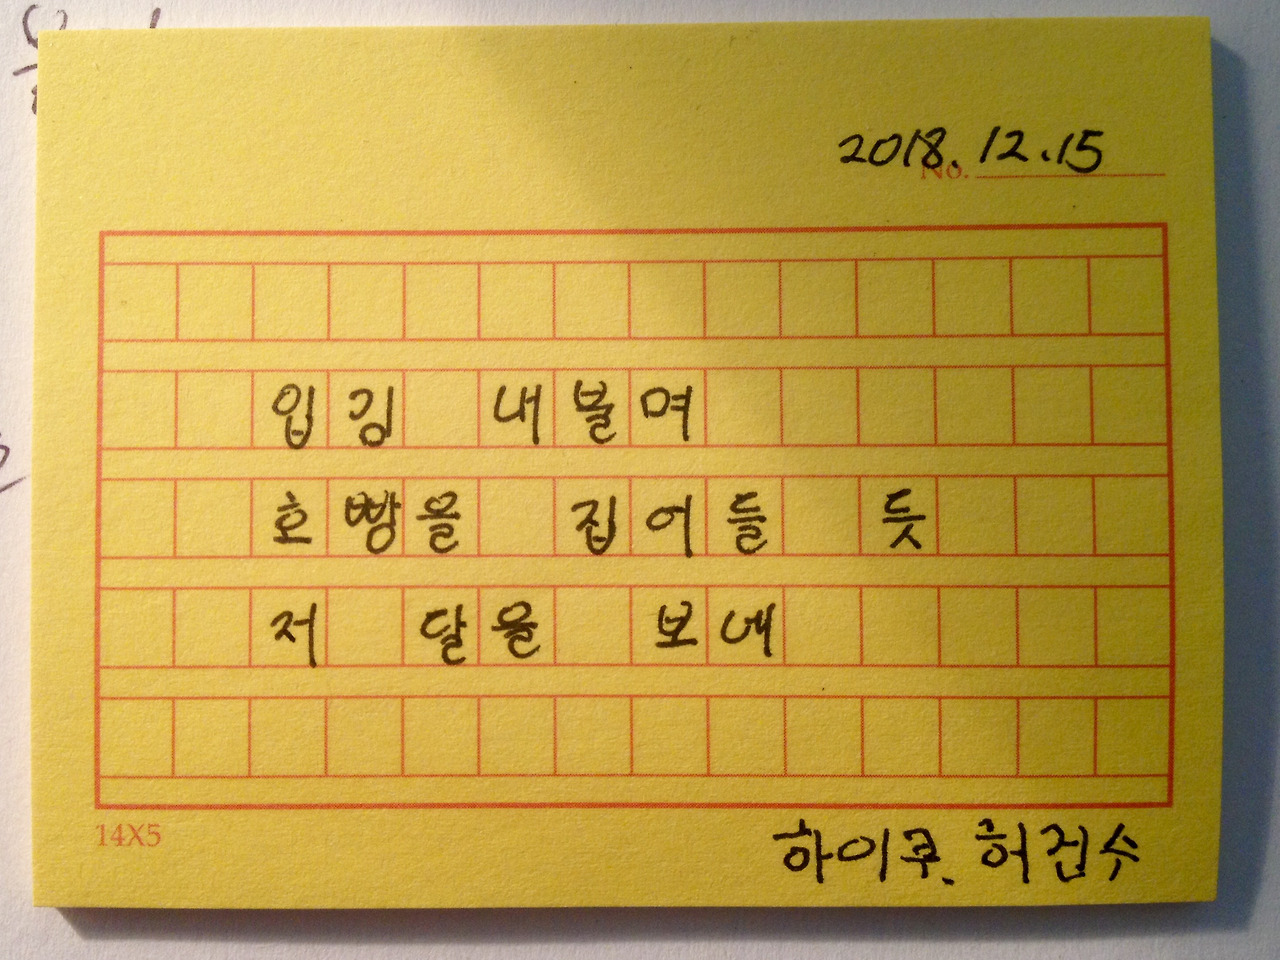 2018. 12. 15
No.
입김 내불며
호빵을 집어들 듯
저 달을 보네
14X5
하이쿠. 허건수